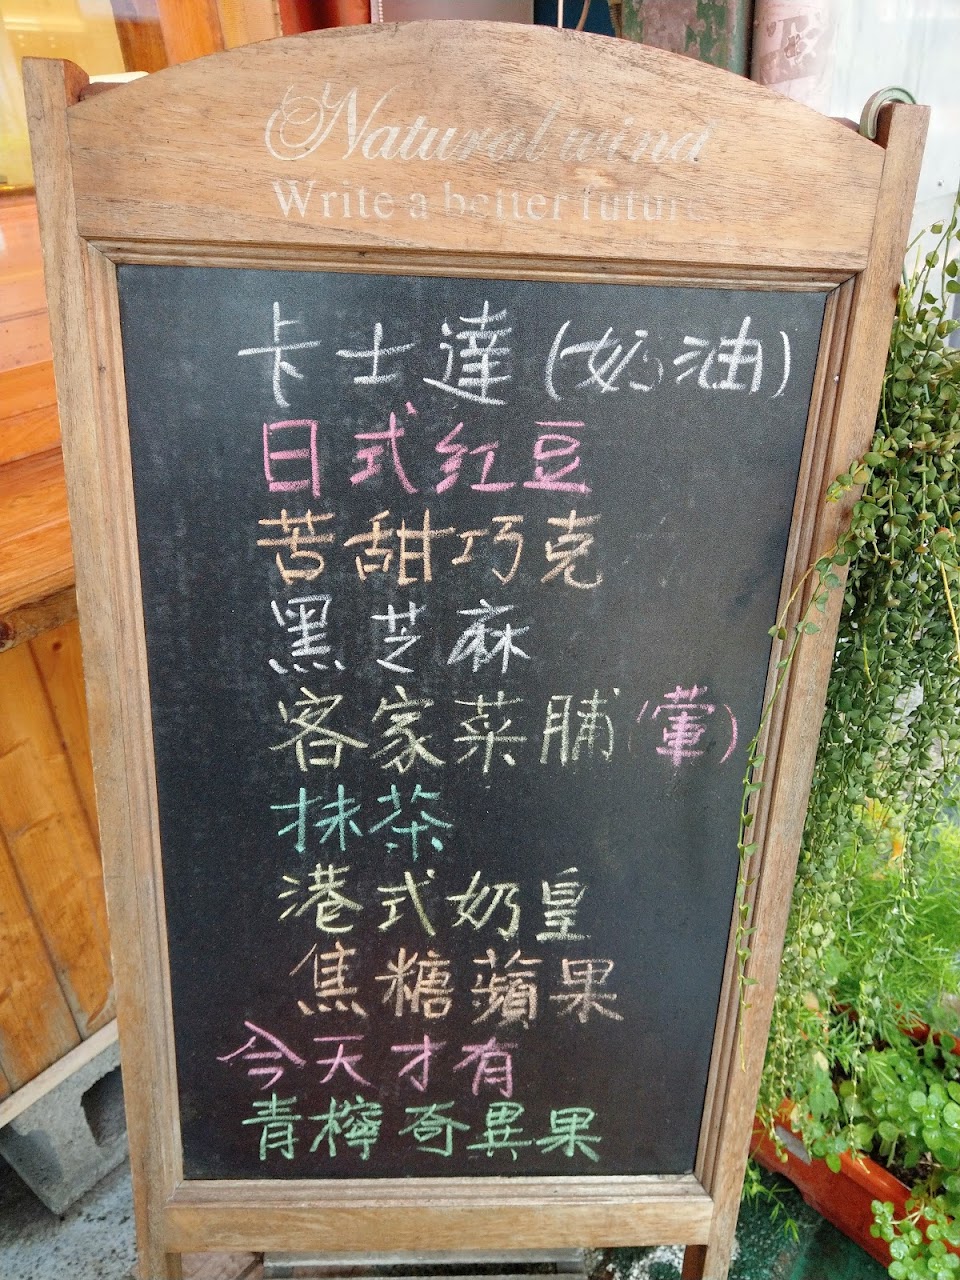 Natural wind
Write a better future
卡士達(奶油)
日式红豆
苦甜巧克
黑芝麻
客家菜脯(葷)
抹茶
港式奶皇
焦糖蘋果
今天才有
青檸奇異果